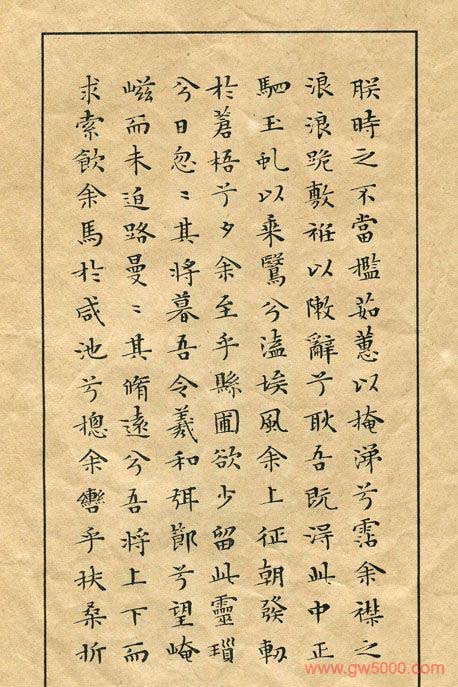 朕時之不當檻茹蕙以掩涕兮霑余襟之
浪浪跪敷衽以陳辭兮耿吾既得此中正
駟玉虬以乘鷖兮溘埃風余上征朝發軔
於蒼梧兮夕余至乎縣圃欲少留此靈瑣
兮日忽〻其將暮吾令羲和弭節兮望崦
嵫而未迫路曼〻其脩遠兮吾將上下而
求索飲余馬於咸池兮摠余轡乎扶桑折
www.gw5000.com